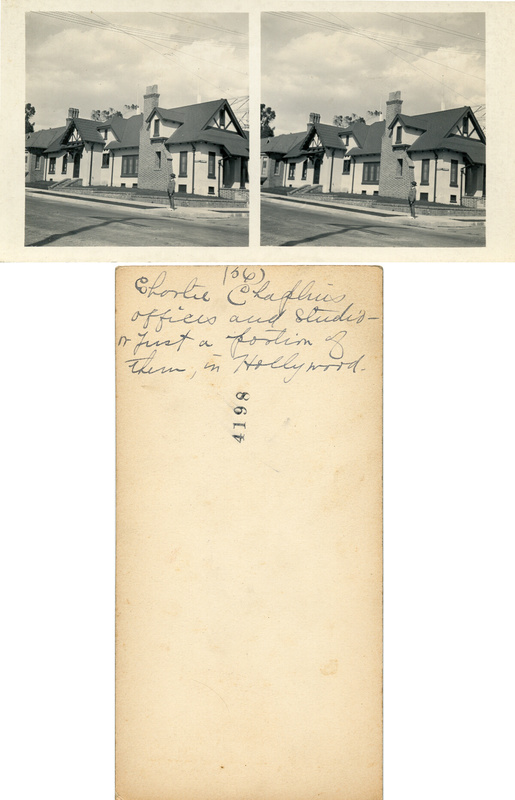 (56)
Charlie Chaplins
offices and studio-
or just a portion of
them, in Hollywood.
4198